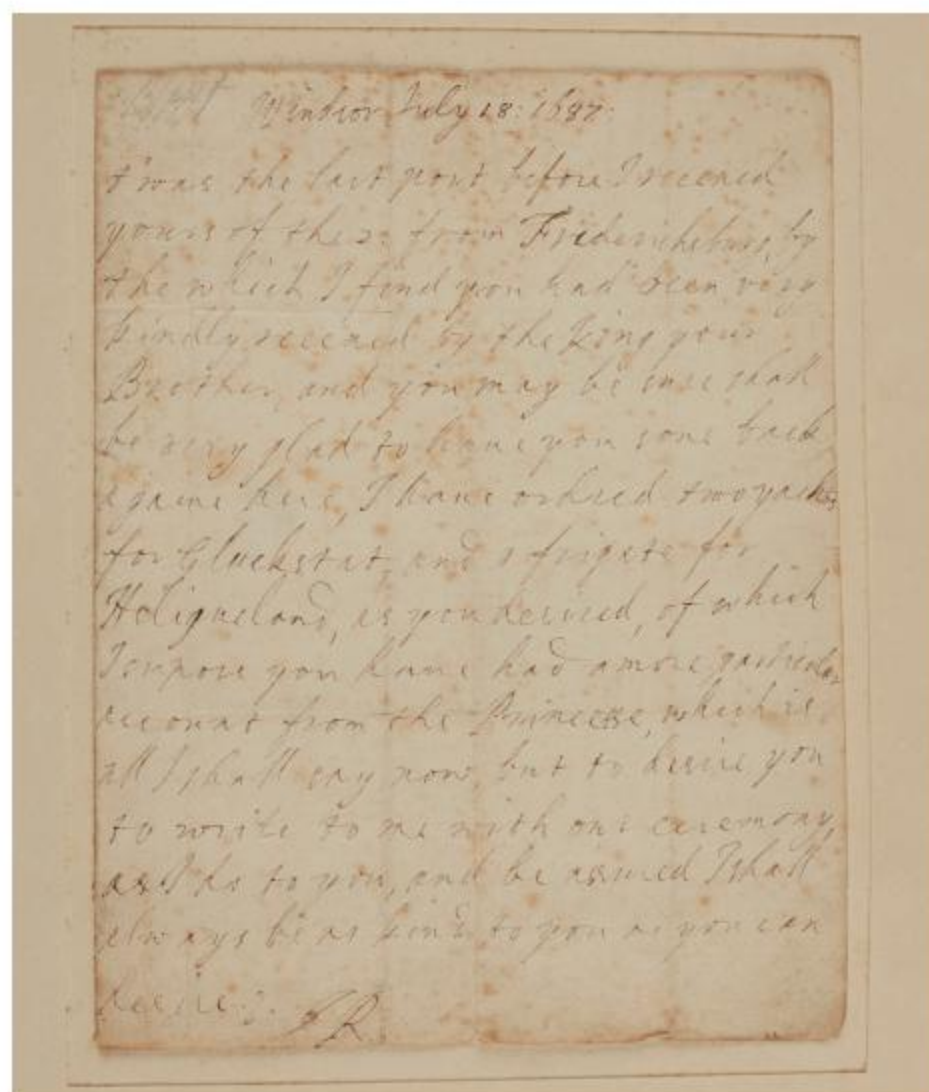 Windsor July 18: 1687.
t'was the last post before I receaved
yours of the 2: from Fredericksburg, by
the which I find you had been very
kindly receaved by the King your
Brother, and you may be sure shall
be very glad to have you come back
againe here, I have ordred two yachts
for Gluckstat, and a frigate for
Heligueland, as you desired, of which
I suppose you have had a more particular
account from the Princesse, which is
all I shall say now, but to desire you
to write to me with out ceremony,
as I do to you, and be assured I shall
always be as kind to you as you can
desire:
JR